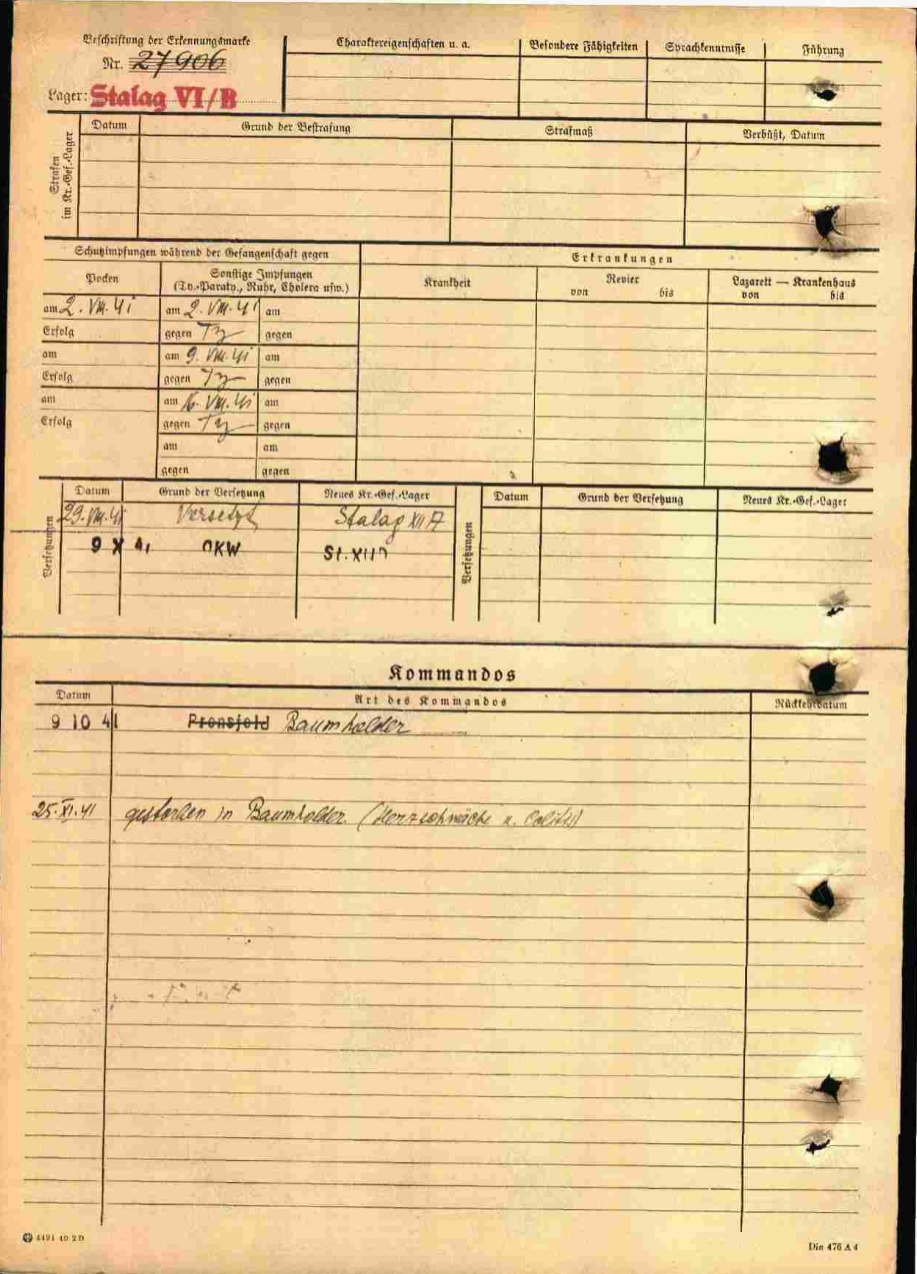 Beschriftung der Erkennungsmarke
Nr. 27906
Lager: Stalag VI/B
Charaktereigenschaften u. a.
Besondere Fähigkeiten
Sprachkenntnisse
Führung
Strafen im Kr.-Gef.-Lager
Datum
Grund der Bestrafung
Strafmaß
Verbüßt, Datum
Schutzimpfungen während der Gefangenschaft gegen
Erkrankungen
Pocken
Sonstige Impfungen
(Ty.-Paraty., Ruhr, Cholera usw.)
Krankheit
Revier
von bis
Lazarett — Krankenhaus
von bis
am 2. VIII. 41 am 2. VIII. 41 am
Erfolg gegen Ty gegen
am am 9. VIII. 41 am
Erfolg gegen Ty gegen
am am 16. VIII. 41 am
Erfolg gegen Ty gegen
am am
gegen gegen
Versetzungen
Datum Grund der Versetzung Neues Kr.-Gef.-Lager
29. VIII. 41 Versetzt Stalag XII A
9 X 41 OKW St. XII
Versetzungen
Datum Grund der Versetzung Neues Kr.-Gef.-Lager
Kommandos
Datum Art des Kommandos Rückkehrdatum
9 10 41 Pronsfeld Baumholder
25. XI. 41 gestorben in Baumholder. (Herzschwäche u. Colitis)
4491 40 2 D
Din 476 A 4